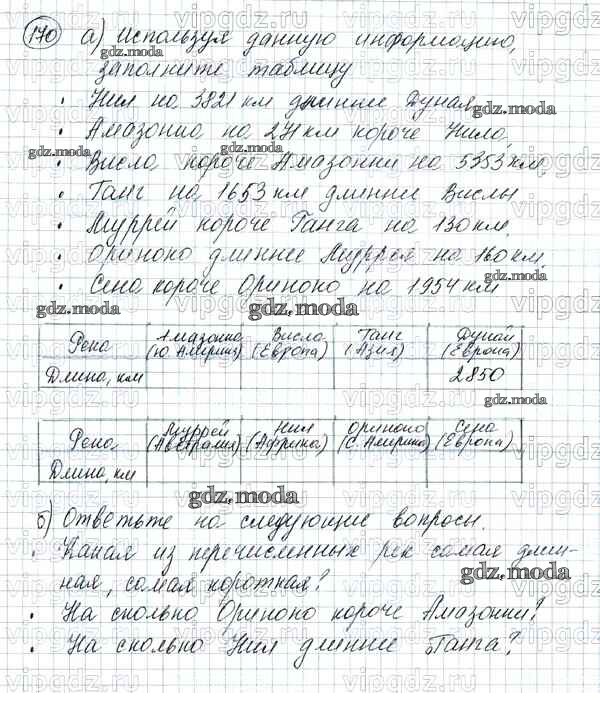 170 а) Используя данную информацию,
заполните таблицу
• Нил на 3821 км длинне Дуная
• Амазонка на 271 км короче Нила,
• Висла короче Амазонки на 5353 км,
• Ганг на 1653 км длиннее Вислы
• Муррей короче Ганга на 130 км,
• Ориноко длиннее Муррея на 160 км.
• Сена короче Ориноко на 1954 км
Река Амазонка (Ю Америка) Висла (Европа) Ганг (Азия) Дунай (Европа)
Длина, км 2850
Река Муррей (Австралия) Нил (Африка) Ориноко (С. Америка) Сена (Европа)
Длина, км
б) Ответьте на следующие вопросы.
• Какая из перечисленных рек самая длин-
ная, самая короткая?
• На сколько Ориноко короче Амазонки?
• На сколько Нил длиннее Ганга?
gdz.moda
vipgdz.ru